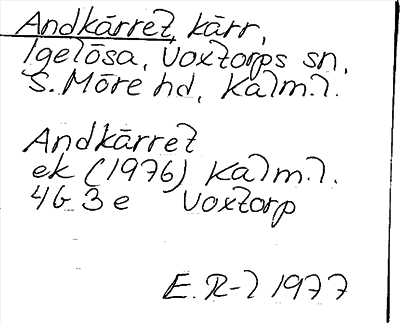 Andkärret, kärr,
Igelösa, Voxtorps sn,
S. Möre hd, Kalm.l.
Andkärret
ek (1976) Kalm.l.
4G 3e Voxtorp
E.R-l 1977